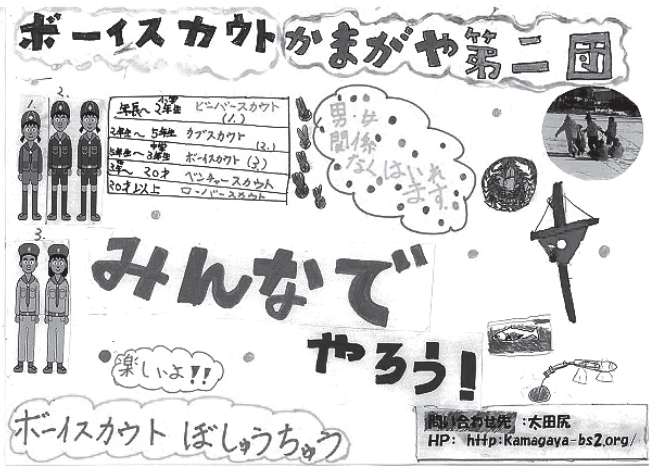 ボーイスカウトかまがや第二団
1.
2.
年長〜小学2年生 ビーバースカウト(1.)
2年生〜5年生 カブスカウト(2.)
5年生〜中学3年生 ボーイスカウト(3.)
〜20才 ベンチャースカウト
20才以上 ローバースカウト
男・女
関係
なくはいれ
ます
3.
みんなで
やろう!
楽しいよ!!
ボーイスカウト ぼしゅうちゅう
問い合わせ先:太田尻
HP: http:kamagaya-bs2.org/